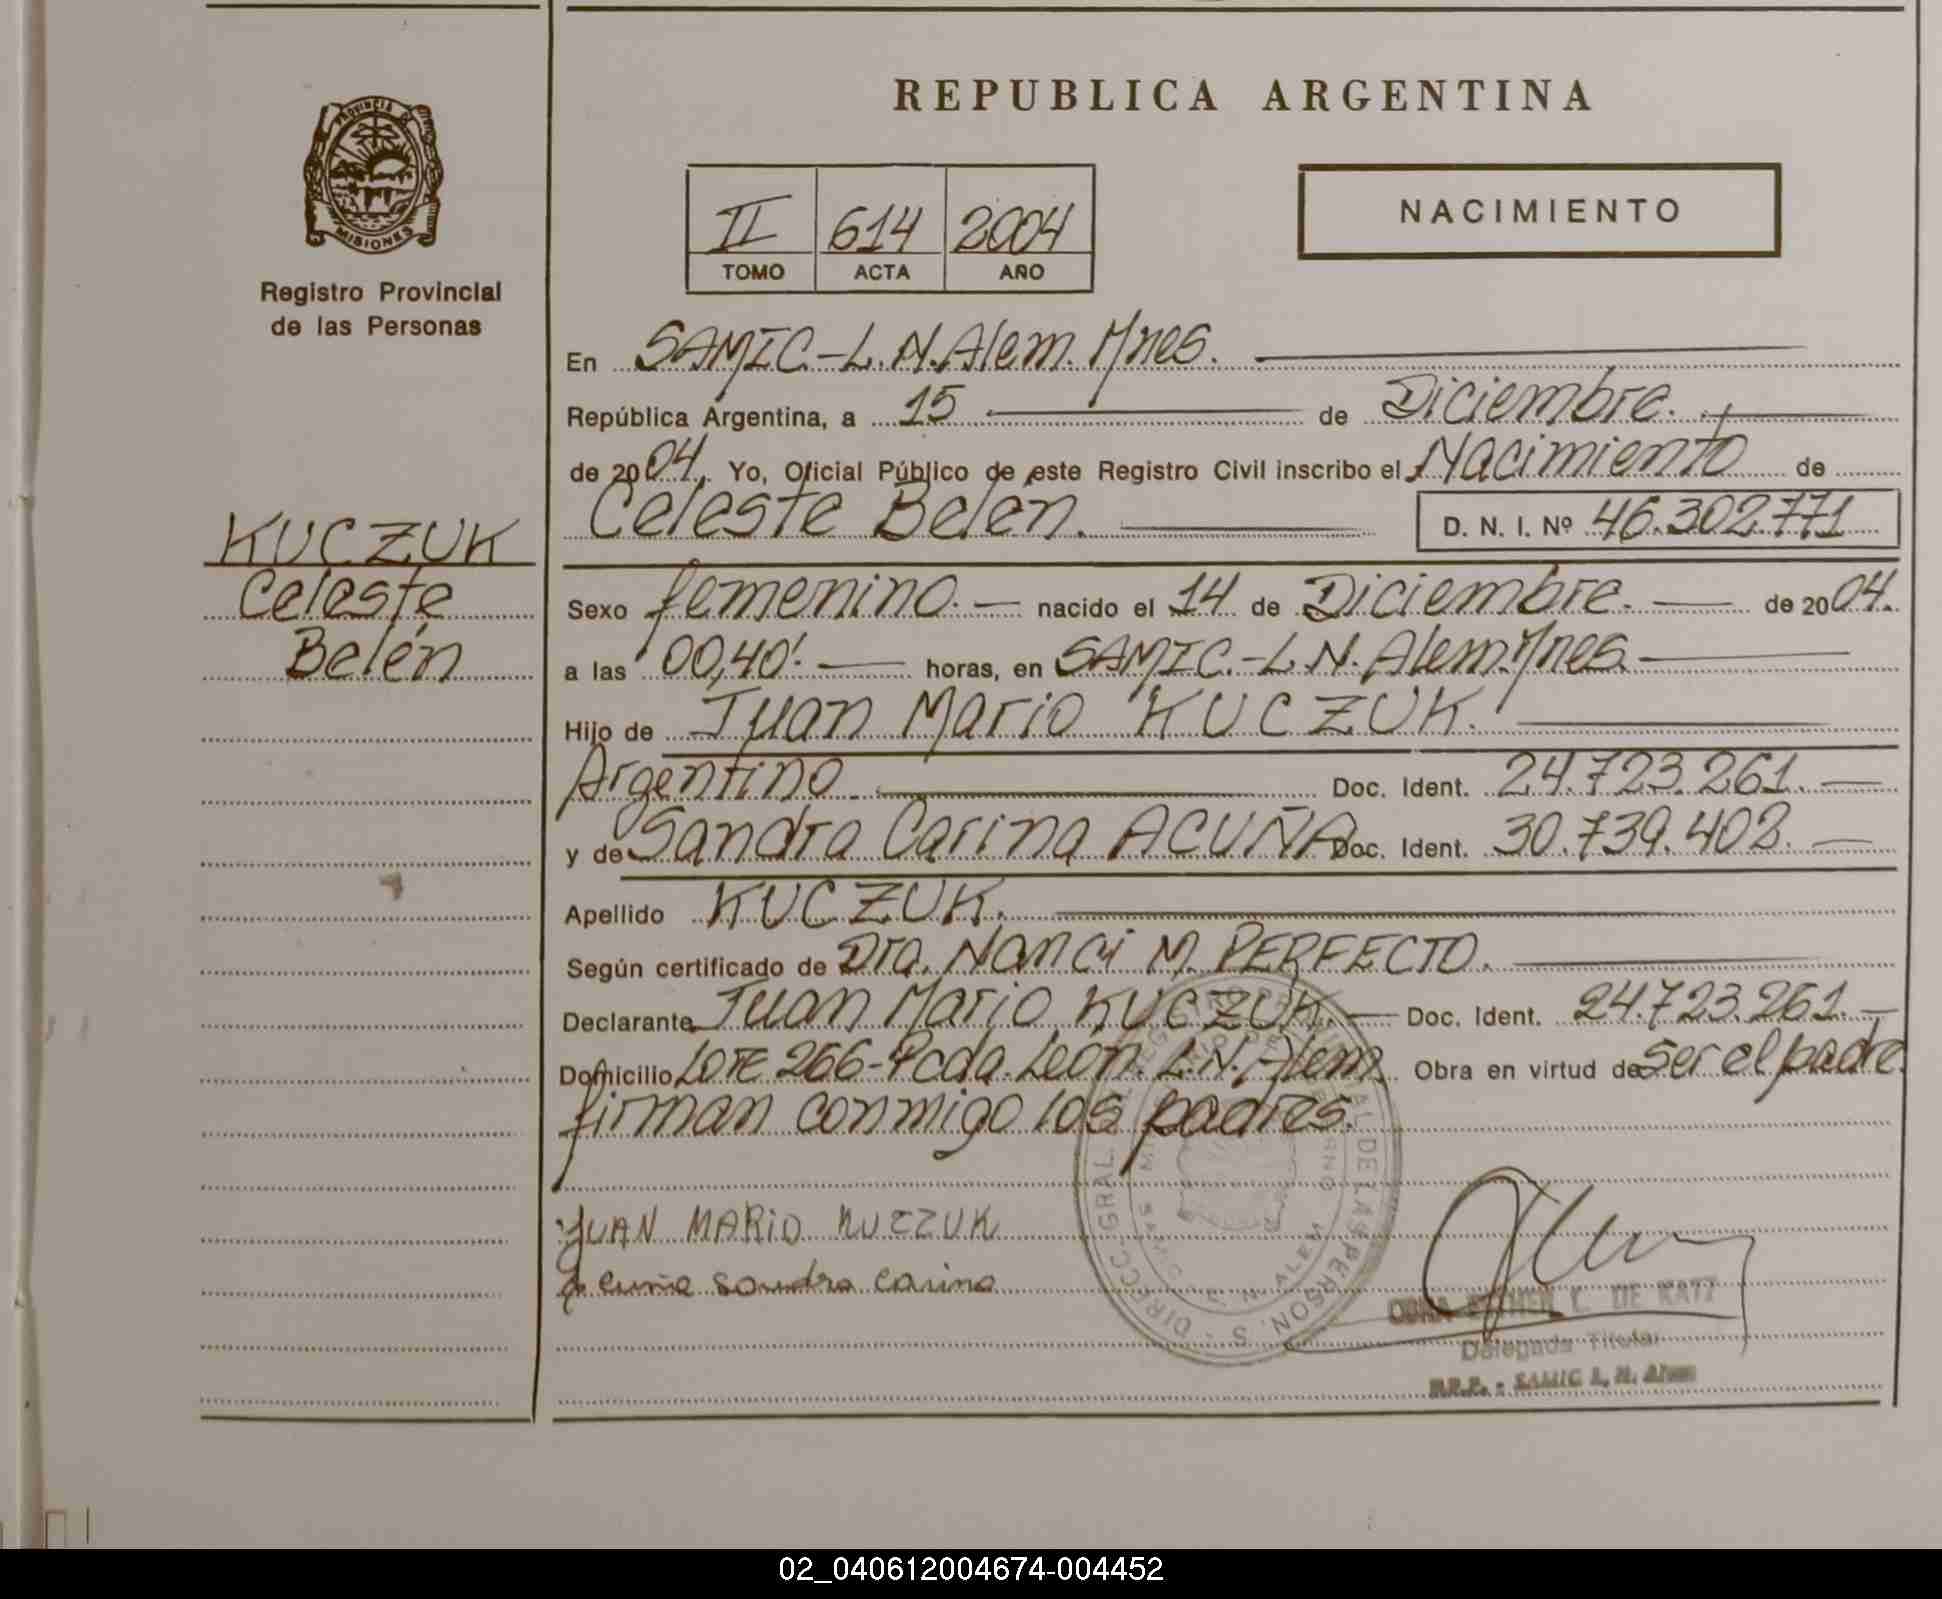 REPUBLICA ARGENTINA
PROVINCIA DE
MISIONES
Registro Provincial
de las Personas
II 614 2004
TOMO ACTA AÑO
NACIMIENTO
KUCZUK
Celeste
Belén
En SAMIC.-L.N.Alem.Mnes.
República Argentina, a 15 de Diciembre.
de 2004. Yo, Oficial Público de este Registro Civil inscribo el Nacimiento de
Celeste Belén. D. N. I. Nº 46.302.771
Sexo femenino. nacido el 14 de Diciembre. de 2004.
a las 00,40'. horas, en SAMIC.-L.N.Alem.Mnes.
Hijo de Juan Mario KUCZUK.
Argentino Doc. Ident. 24.723.261.
y de Sandra Carina ACUÑA Doc. Ident. 30.739.402.
Apellido KUCZUK.
Según certificado de Dra. Nanci M. PERFECTO.
Declarante Juan Mario KUCZUK. Doc. Ident. 24.723.261.
Domicilio LOTE 266-Pcda.León. L.N.Alem. Obra en virtud de ser el padre.
firman conmigo los padres.
JUAN MARIO KUCZUK
Acuña Sandra Carina
DIRECC. GRAL. DE LAS PERSONAS
L. N. ALEM
L. DE KATZ
Delegada Titular
R.P.P. - SAMIC L. N. Alem
02_040612004674-004452